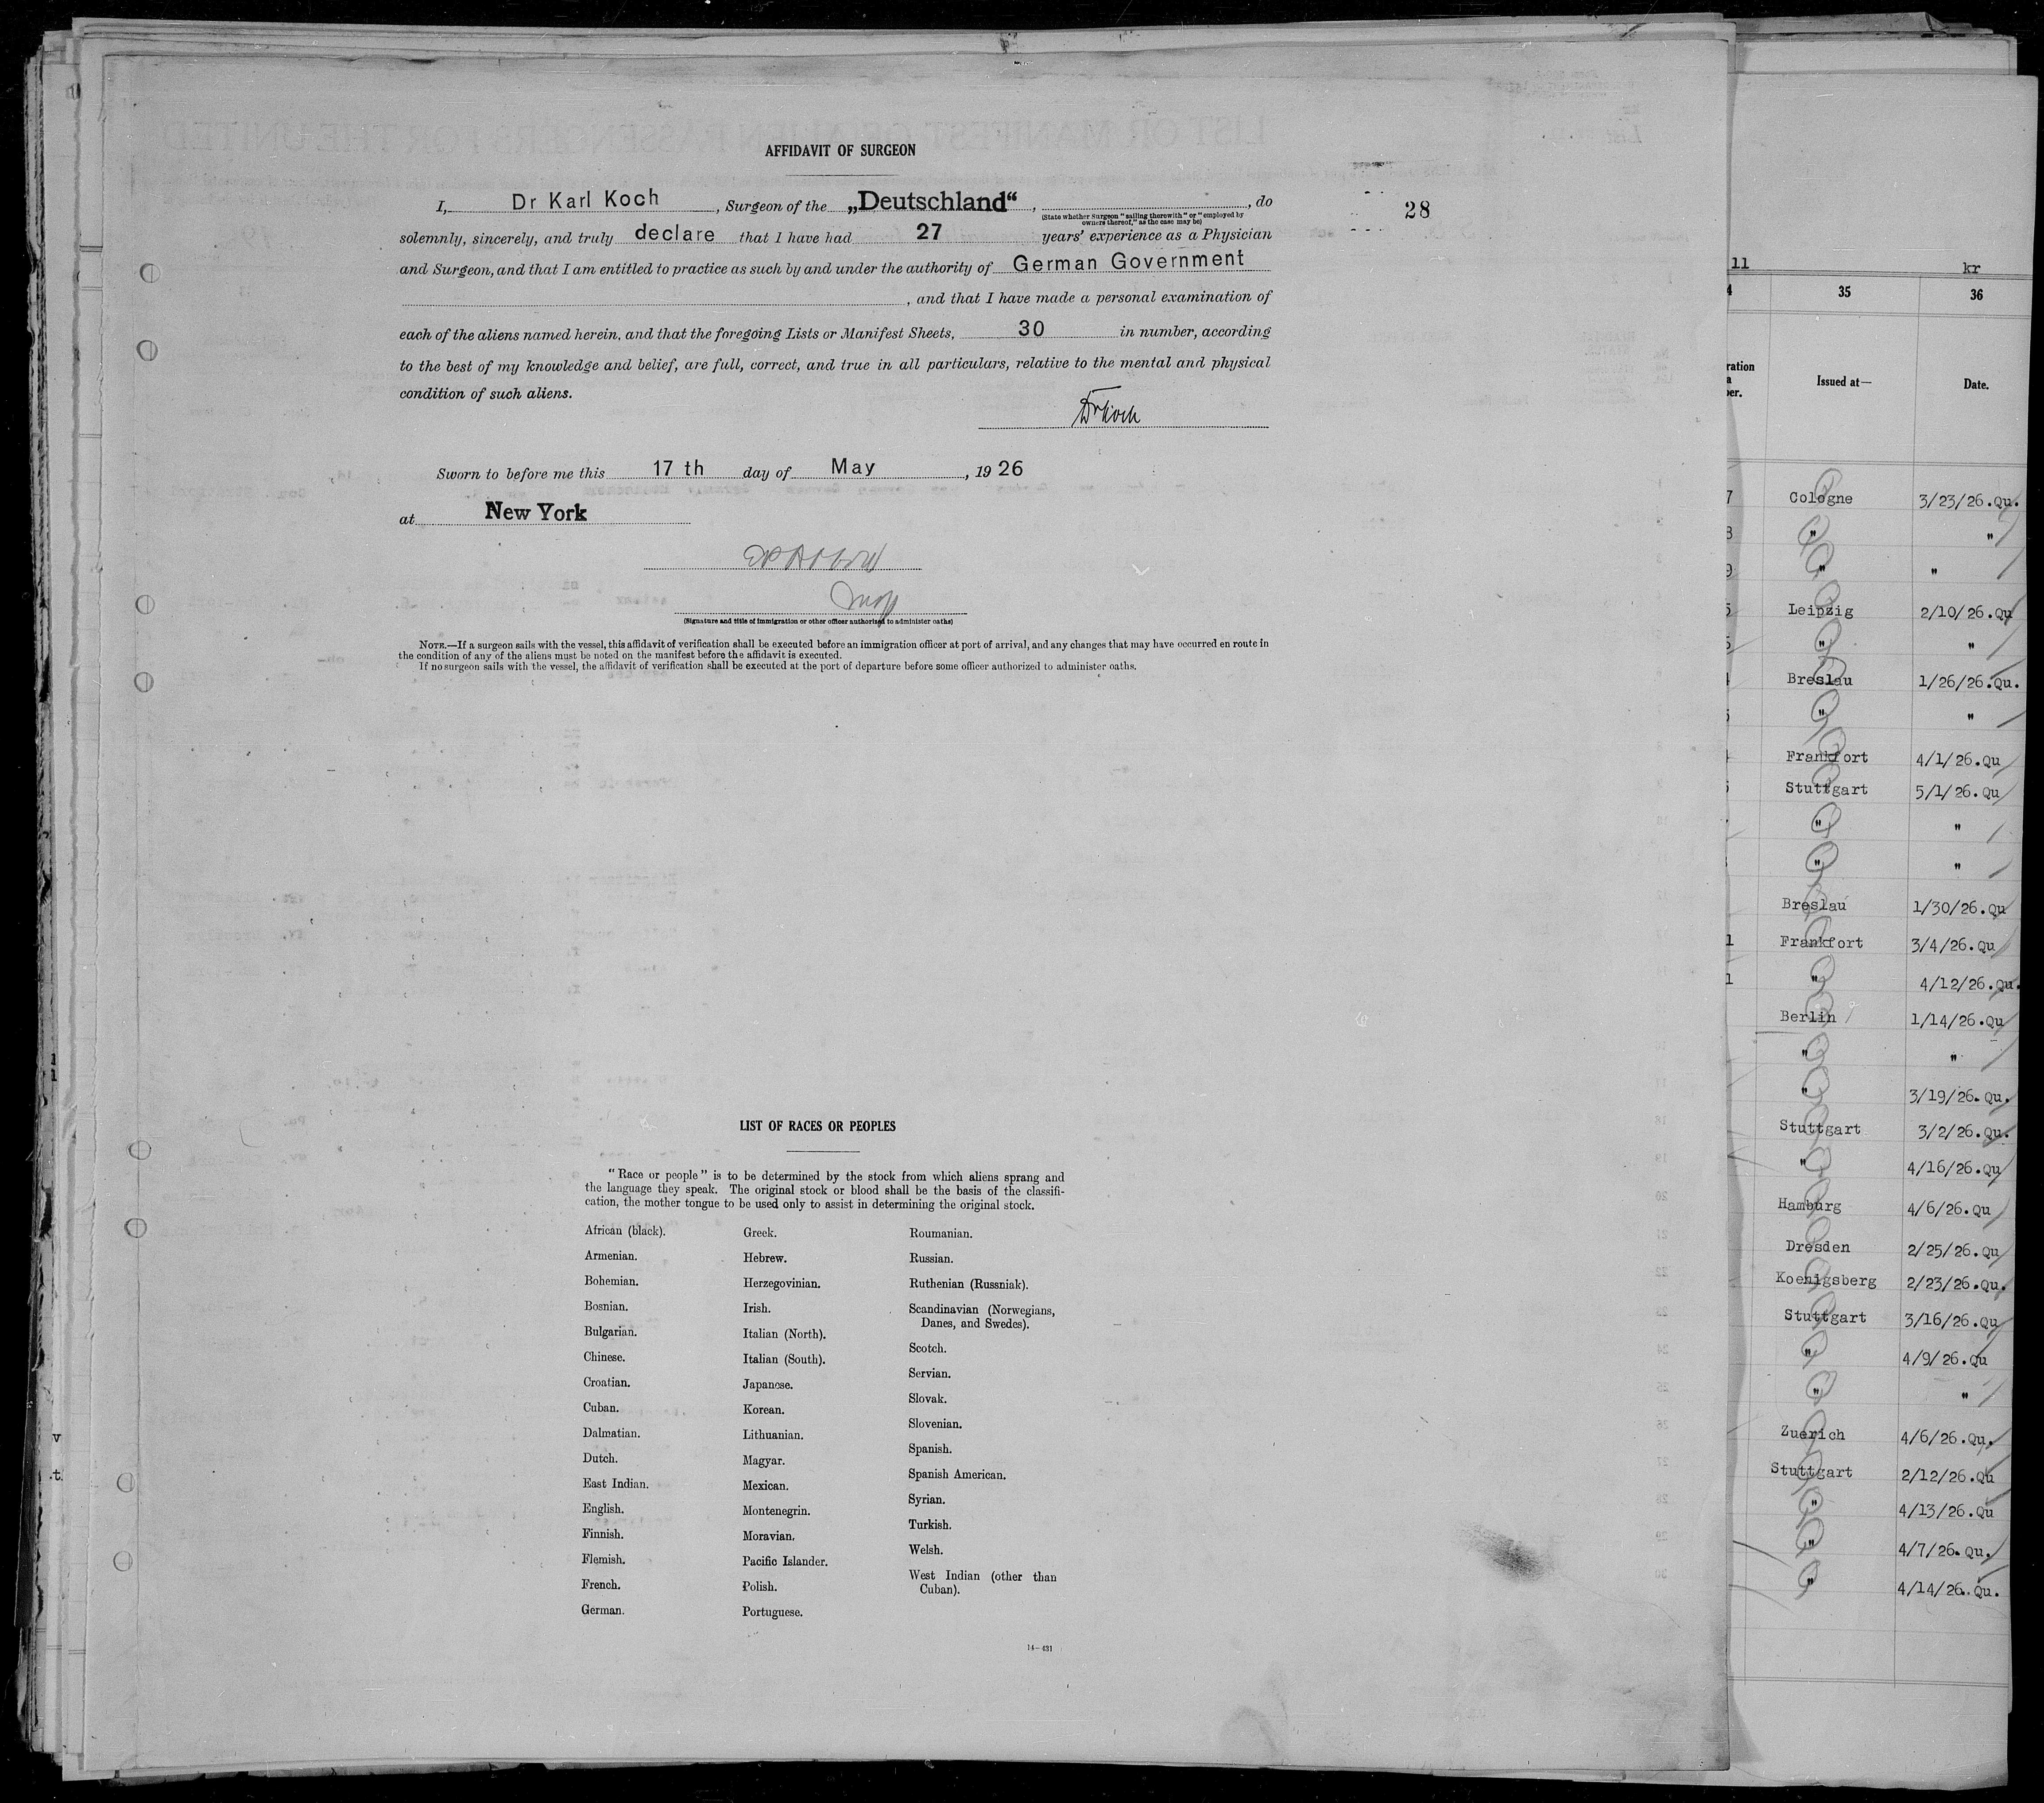 AFFIDAVIT OF SURGEON
I, Dr Karl Koch, Surgeon of the „Deutschland“, , do
(State whether Surgeon "sailing therewith" or "employed by owners thereof," as the case may be)
28
solemnly, sincerely, and truly declare that I have had 27 years' experience as a Physician
and Surgeon, and that I am entitled to practice as such by and under the authority of German Government
, and that I have made a personal examination of
each of the aliens named herein, and that the foregoing Lists or Manifest Sheets, 30 in number, according
to the best of my knowledge and belief, are full, correct, and true in all particulars, relative to the mental and physical
condition of such aliens.
Dr Koch
Sworn to before me this 17 th day of May, 19 26
at New York
(Signature and title of immigration or other officer authorised to administer oaths)
NOTE.—If a surgeon sails with the vessel, this affidavit of verification shall be executed before an immigration officer at port of arrival, and any changes that may have occurred en route in
the condition of any of the aliens must be noted on the manifest before the affidavit is executed.
If no surgeon sails with the vessel, the affidavit of verification shall be executed at the port of departure before some officer authorized to administer oaths.
LIST OF RACES OR PEOPLES
"Race or people" is to be determined by the stock from which aliens sprang and
the language they speak. The original stock or blood shall be the basis of the classifi-
cation, the mother tongue to be used only to assist in determining the original stock.
African (black).
Armenian.
Bohemian.
Bosnian.
Bulgarian.
Chinese.
Croatian.
Cuban.
Dalmatian.
Dutch.
East Indian.
English.
Finnish.
Flemish.
French.
German.
Greek.
Hebrew.
Herzegovinian.
Irish.
Italian (North).
Italian (South).
Japanese.
Korean.
Lithuanian.
Magyar.
Mexican.
Montenegrin.
Moravian.
Pacific Islander.
Polish.
Portuguese.
Roumanian.
Russian.
Ruthenian (Russniak).
Scandinavian (Norwegians,
Danes, and Swedes).
Scotch.
Servian.
Slovak.
Slovenian.
Spanish.
Spanish American.
Syrian.
Turkish.
Welsh.
West Indian (other than
Cuban).
14—431
11 kr
35 36
Issued at— Date.
7 Cologne 3/23/26.Qu.
8 " "
9 " "
5 Leipzig 2/10/26.Qu
" "
Breslau 1/26/26.Qu.
" "
Frankfort 4/1/26.Qu
Stuttgart 5/1/26.Qu
" "
" "
Breslau 1/30/26.Qu
1 Frankfort 3/4/26.Qu
1 " 4/12/26.Qu.
Berlin 1/14/26.Qu
" "
" 3/19/26.Qu.
Stuttgart 3/2/26.Qu.
" 4/16/26.Qu
Hamburg 4/6/26.Qu
Dresden 2/25/26.Qu
Koenigsberg 2/23/26.Qu.
Stuttgart 3/16/26.Qu
" 4/9/26.Qu
" "
Zuerich 4/6/26.Qu.
Stuttgart 2/12/26.Qu
" 4/13/26.Qu
" 4/7/26.Qu.
" 4/14/26.Qu.